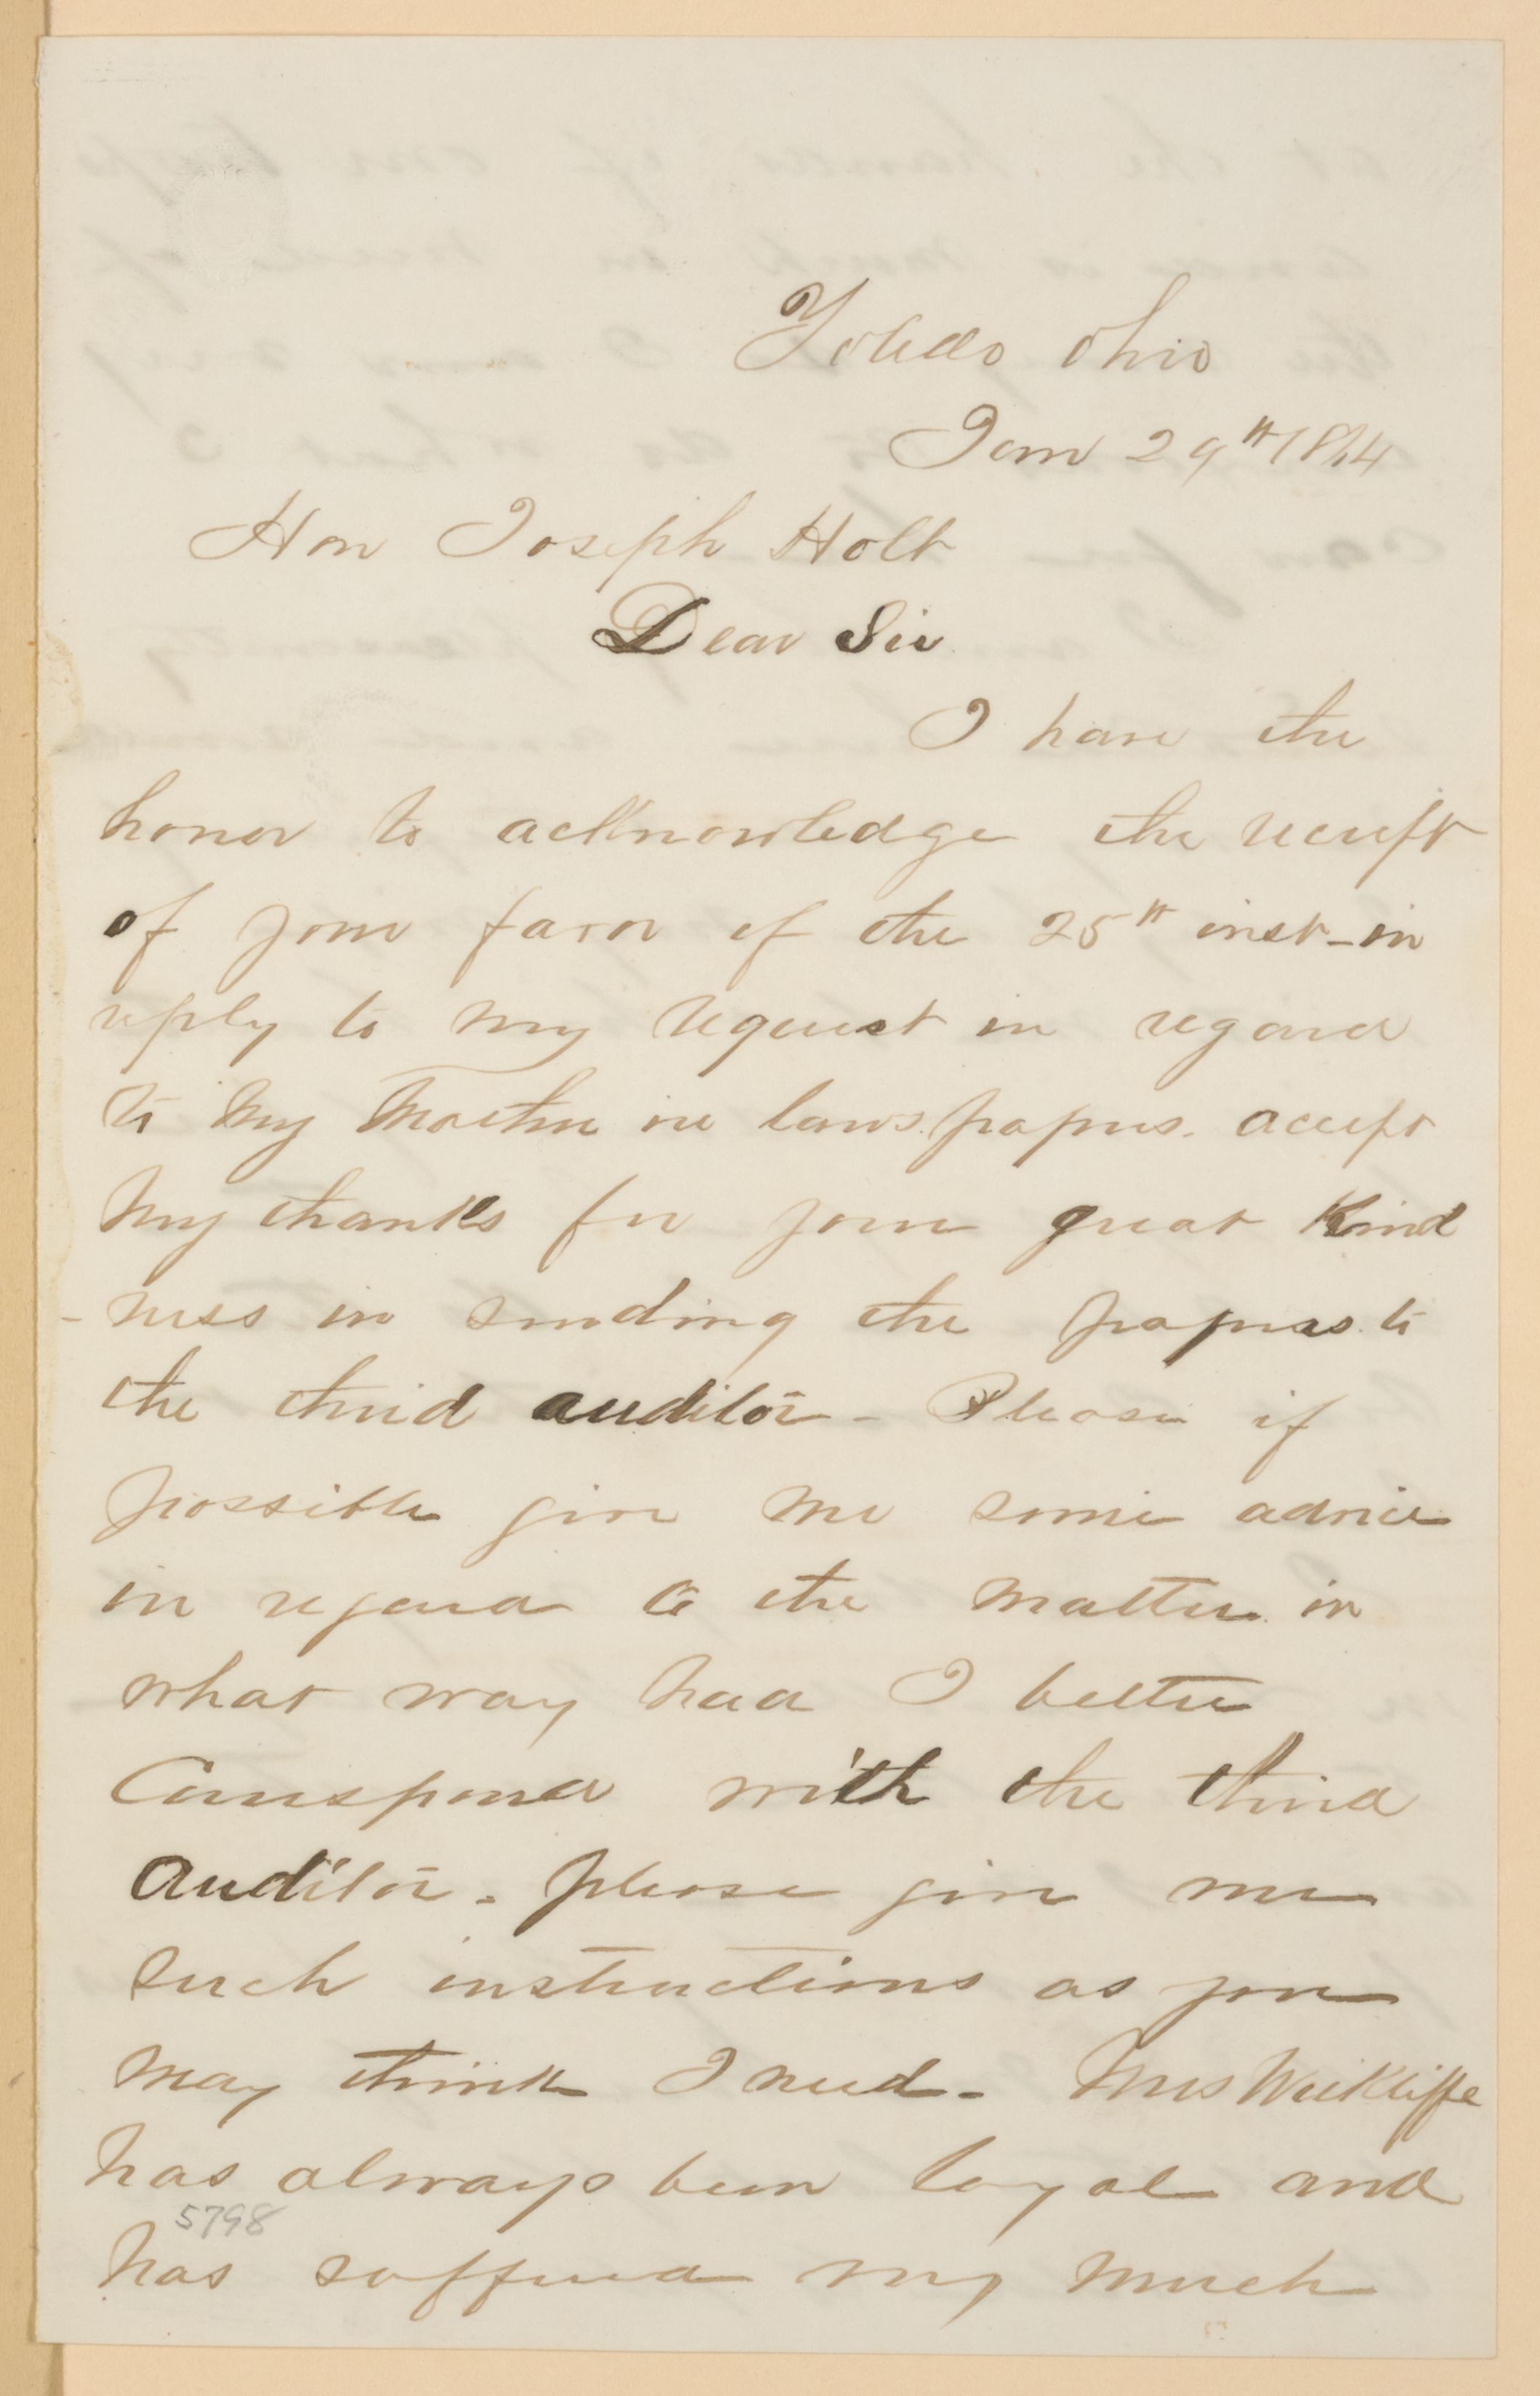 Toledo Ohio
Jan 29th 1864
Hon Joseph Holt
Dear Sir
I have the
honor to acknowledge the receipt
of your favor of the 25th inst - in
reply to my request in regard
to my Mother in laws papers. accept
my thanks for your great kind
-ness in sending the papers to
the third auditor - Please if
possible give me some advice
in regard to the matter in
what way had I better
Correspond with the third
Auditor - please give me
such instructions as you
may think I need - Mrs Wickliffe
has always been loyal and
5798
has suffered very much